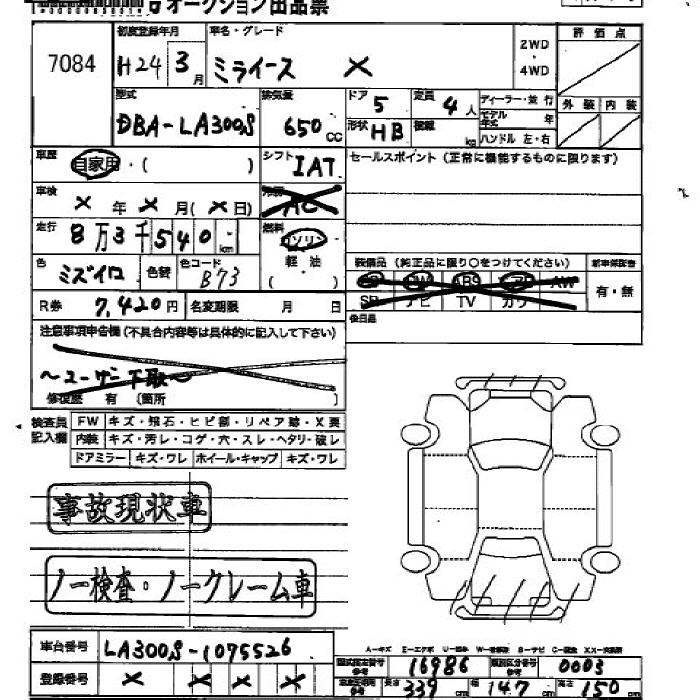 オークション出品票
7084
初度登録年月
H24 3月
車名・グレード
ミライース X
2WD
・
4WD
評価点
型式
DBA-LA300S
排気量
650 CC
ドア
5
定員
4人
形状
HB
積載
kg
ディーラー・並行
モデル年式 年
ハンドル 左・右
外装 内装
車歴
自家用・( )
シフト
IAT
セールスポイント (正常に機能するものに限ります)
車検
× 年 × 月 (× 日)
冷房
AC
走行
8万3千540 km
燃料
ガソリン
軽油
( )
色
ミズイロ
色替
色コード
B73
装備品 (純正品に限り○をつけてください)
新車保証書
ABS
AW
SR ナビ TV カワ
有・無
R券 7,420円
名変期限 月 日
後日品
注意事項申告欄 (不具合内容等は具体的に記入して下さい)
〜ユーザー下取〜
修復歴 有 (箇所 )
検査員
記入欄
FW キズ・飛石・ヒビ割・リペア跡・X要
内装 キズ・汚レ・コゲ・穴・スレ・ヘタリ・破レ
ドアミラー キズ・ワレ ホイール・キャップ キズ・ワレ
事故現状車
ノー検査・ノークレーム車
車台番号
LA300S-1075526
登録番号
× × × ×
型式指定番号
16986
類別区分番号
0003
長さ 339 cm
幅 147 cm
高さ 150 cm